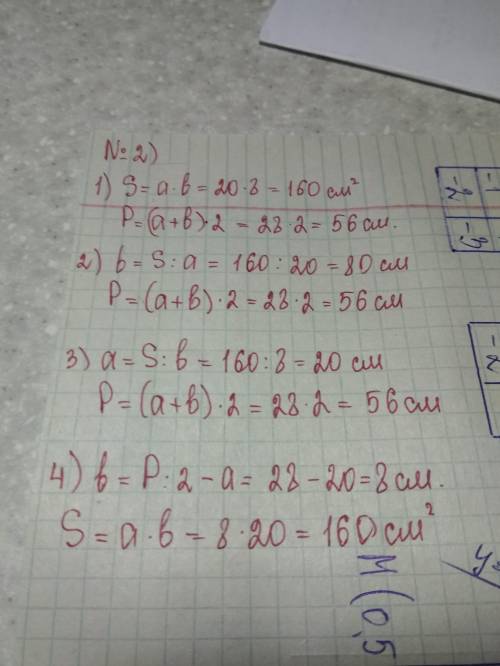 № 2)
1) S = a · b = 20 · 8 = 160 см²
P = (a + b) · 2 = 28 · 2 = 56 см.
2) b = S : a = 160 : 20 = 80 см
P = (a + b) · 2 = 28 · 2 = 56 см
3) a = S : b = 160 : 8 = 20 см
P = (a + b) · 2 = 28 · 2 = 56 см
4) b = P : 2 - a = 28 - 20 = 8 см.
S = a · b = 8 · 20 = 160 см²
M (0,5
y=